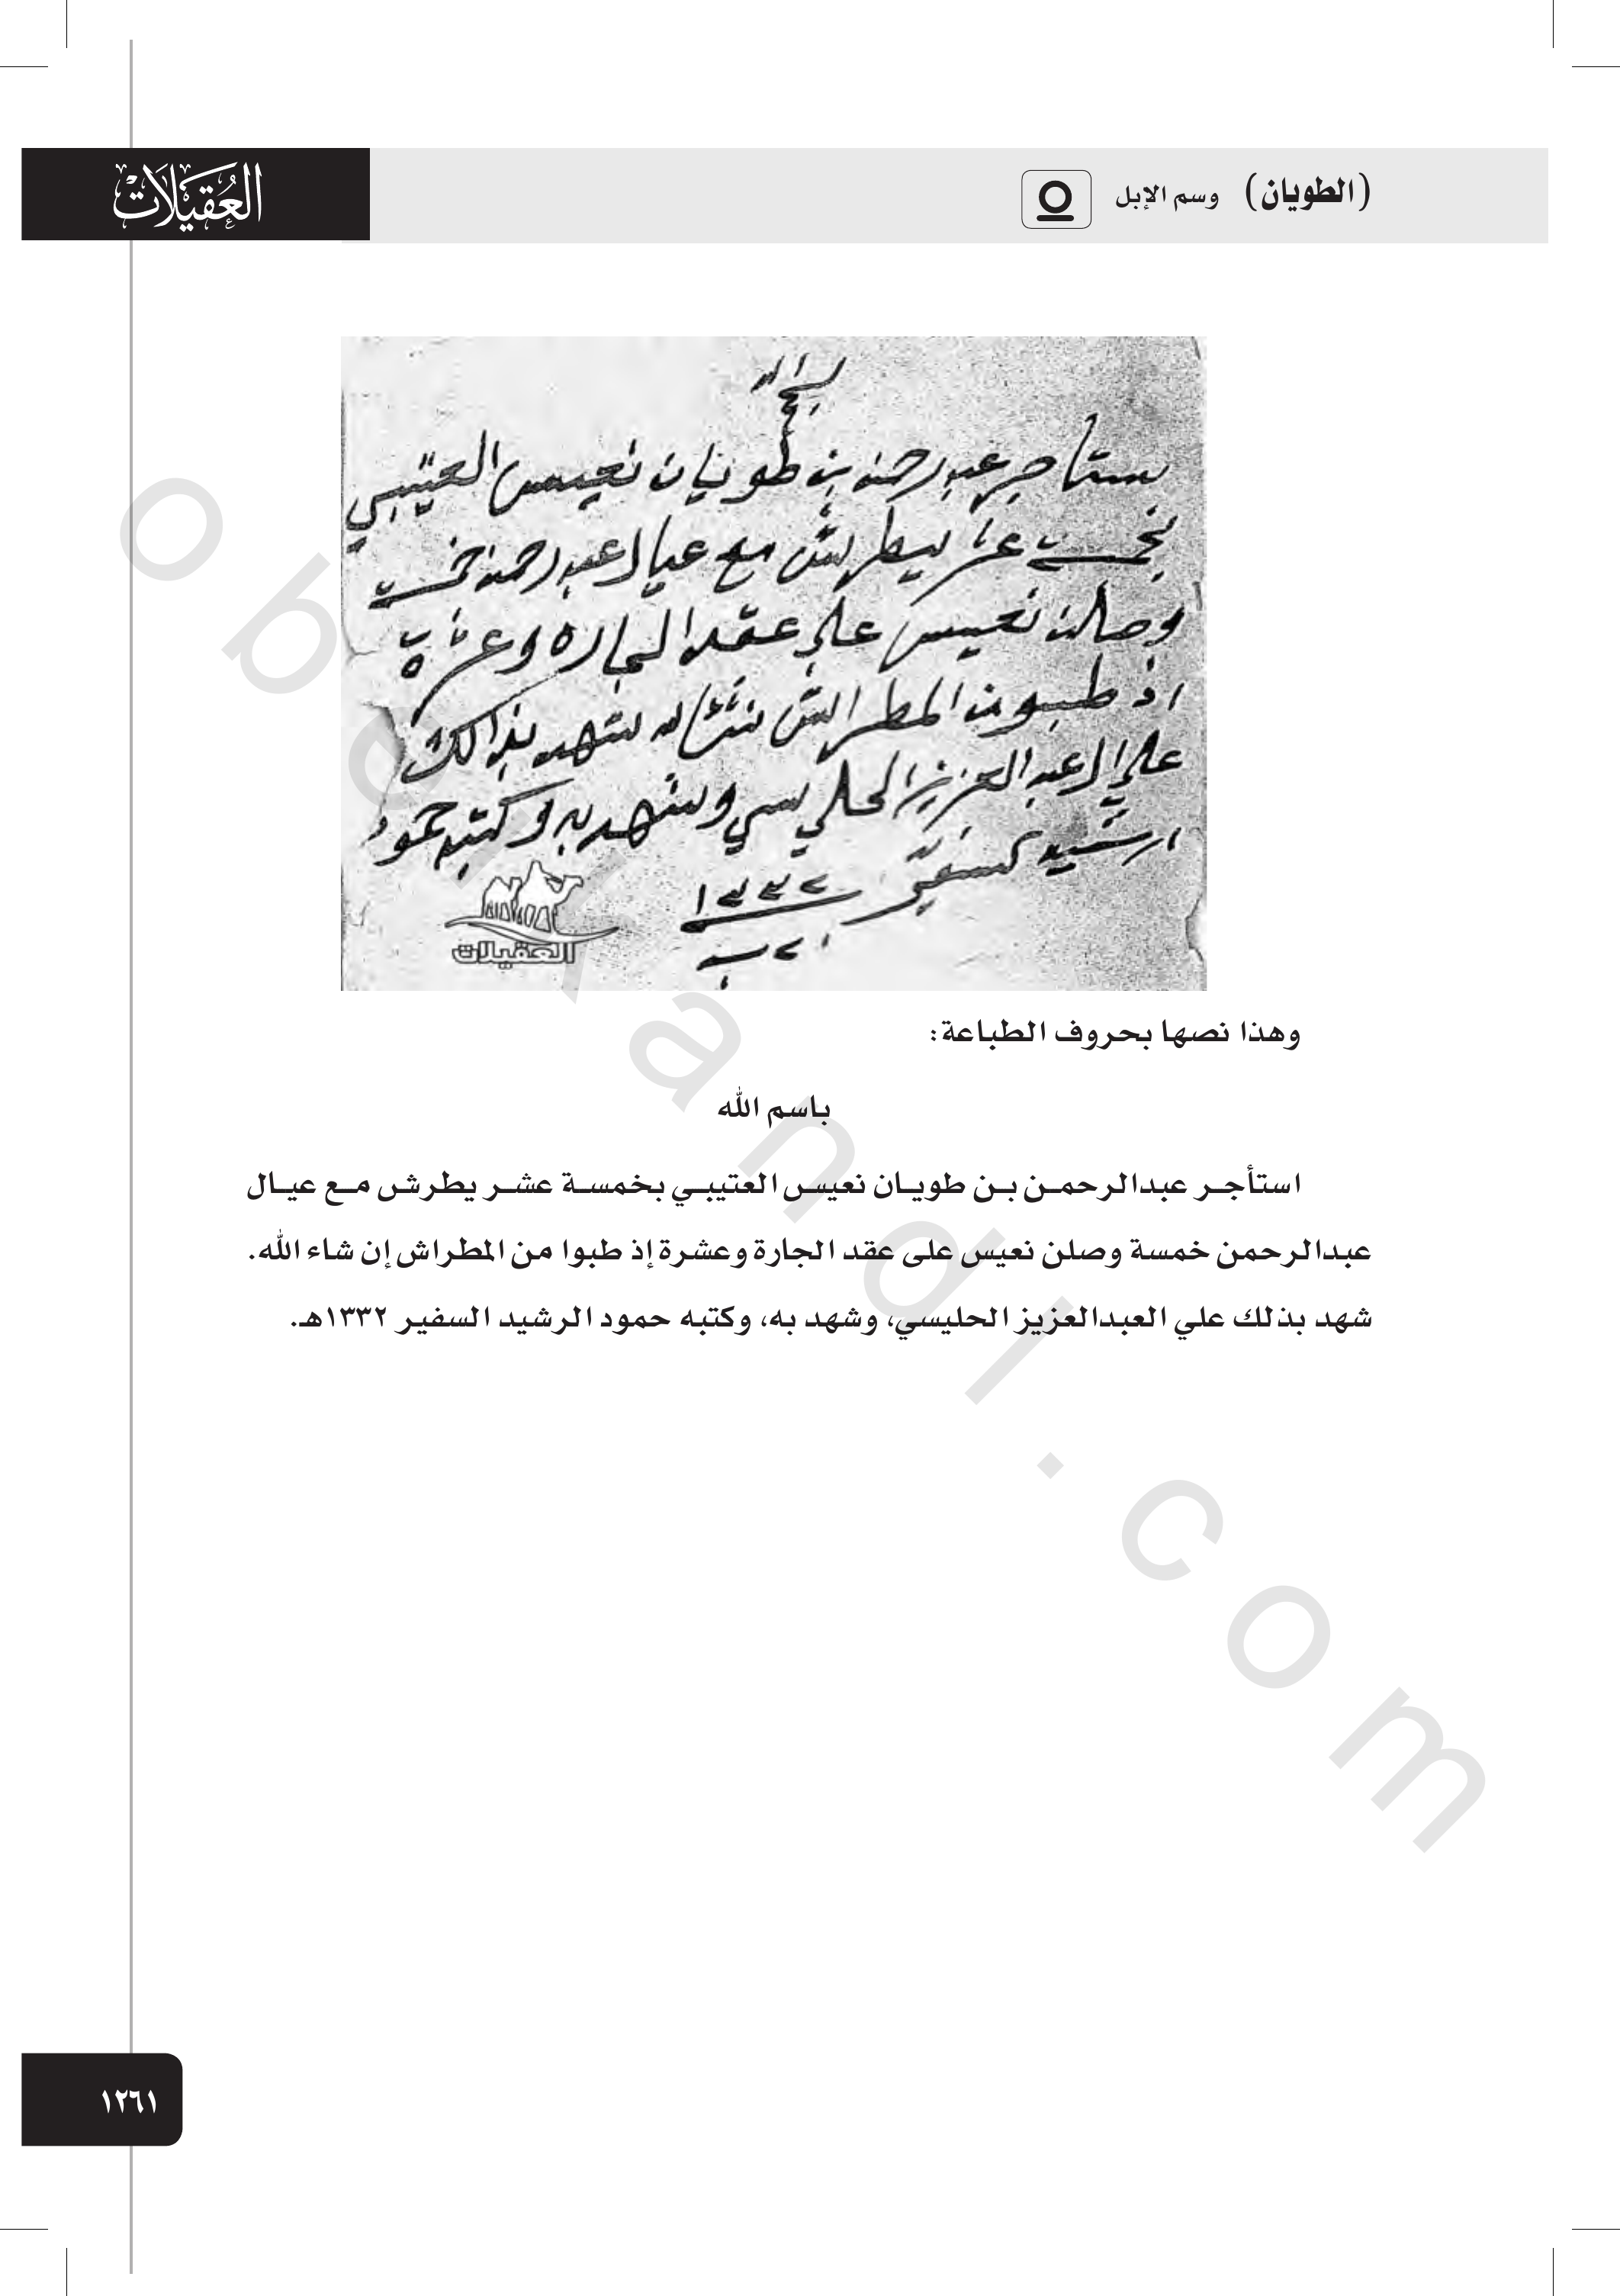 (الطويان) وسم الإبل
العُقيلات
باسم الله
يستأجر عبد رحمن بن طويان نعيس العتيبي
بخمسة عشر يطرش مع عيال عبد رحمن خمسة
وصلن نعيس على عقد الجاره وعشرة
اذ طبو من المطراش نشاله شهد بذالك
علي ال عبد العزيز الحليسي وشهد به وكتبه حمود
ارشيد
١٣٣٢
العقيلات
وهذا نصها بحروف الطباعة:
باسم الله
استأجر عبدالرحمن بن طويان نعيس العتيبي بخمسة عشر يطرش مع عيال
عبدالرحمن خمسة وصلن نعيس على عقد الجارة وعشرة إذ طبوا من المطراش إن شاء الله.
شهد بذلك علي العبدالعزيز الحليسي، وشهد به، وكتبه حمود الرشيد السفير ١٣٣٢هـ.
١٢٦١
obeikandl.com